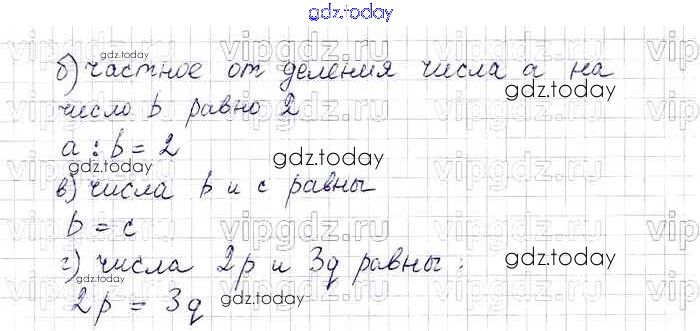 gdz.today
б) частное от деления числа a на
число b равно 2
a : b = 2
в) числа b и c равны
b = c
г) числа 2p и 3q равны:
2p = 3q
gdz.today
gdz.today
gdz.today
gdz.today
gdz.today
gdz.today
vipgdz.ru